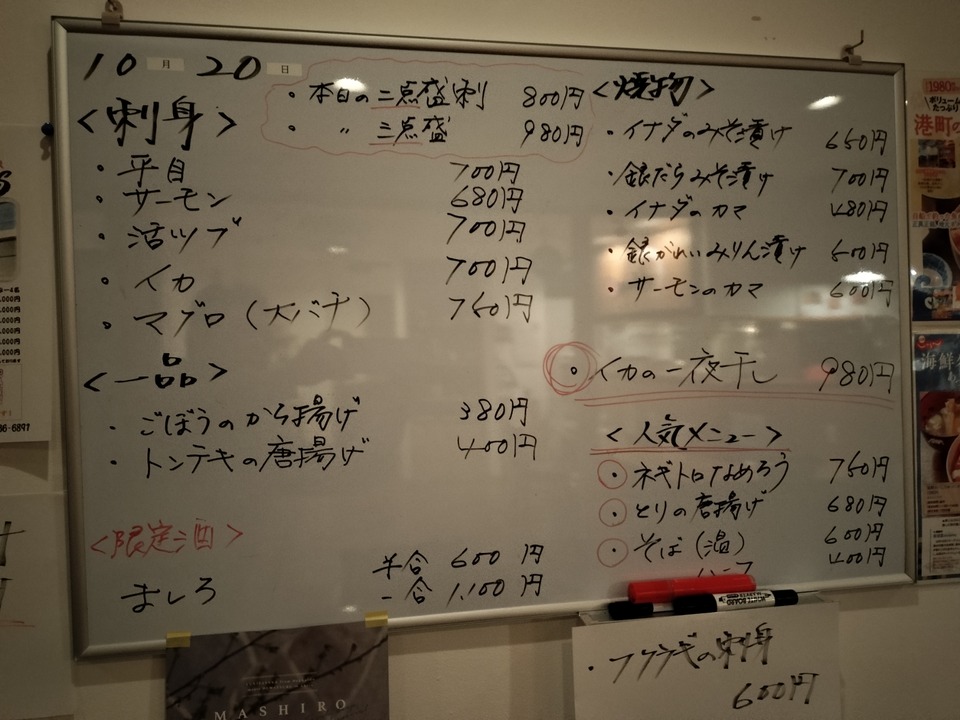 10月20日
・本日の二点盛刺 800円
・ 〃 三点盛 980円
<刺身>
・平目 700円
・サーモン 680円
・活ツブ 700円
・イカ 700円
・マグロ(大バチ) 750円
<一品>
・ごぼうのから揚げ 380円
・トンテキの唐揚げ 400円
<限定酒>
ましろ 半合 600円
一合 1,100円
<焼物>
・イナダのみそ漬け 650円
・銀だらみそ漬け 700円
・イナダのカマ 480円
・銀がれいみりん漬け 600円
・サーモンのカマ 600円
・イカの一夜干し 980円
<人気メニュー>
・ネギトロなめろう 750円
・とりの唐揚げ 680円
・そば(温) 600円
400円
・フクラギの刺身
600円
MASHIRO
WHITE BOARD
1980
ボリューム
たっぷり
港町の
海鮮